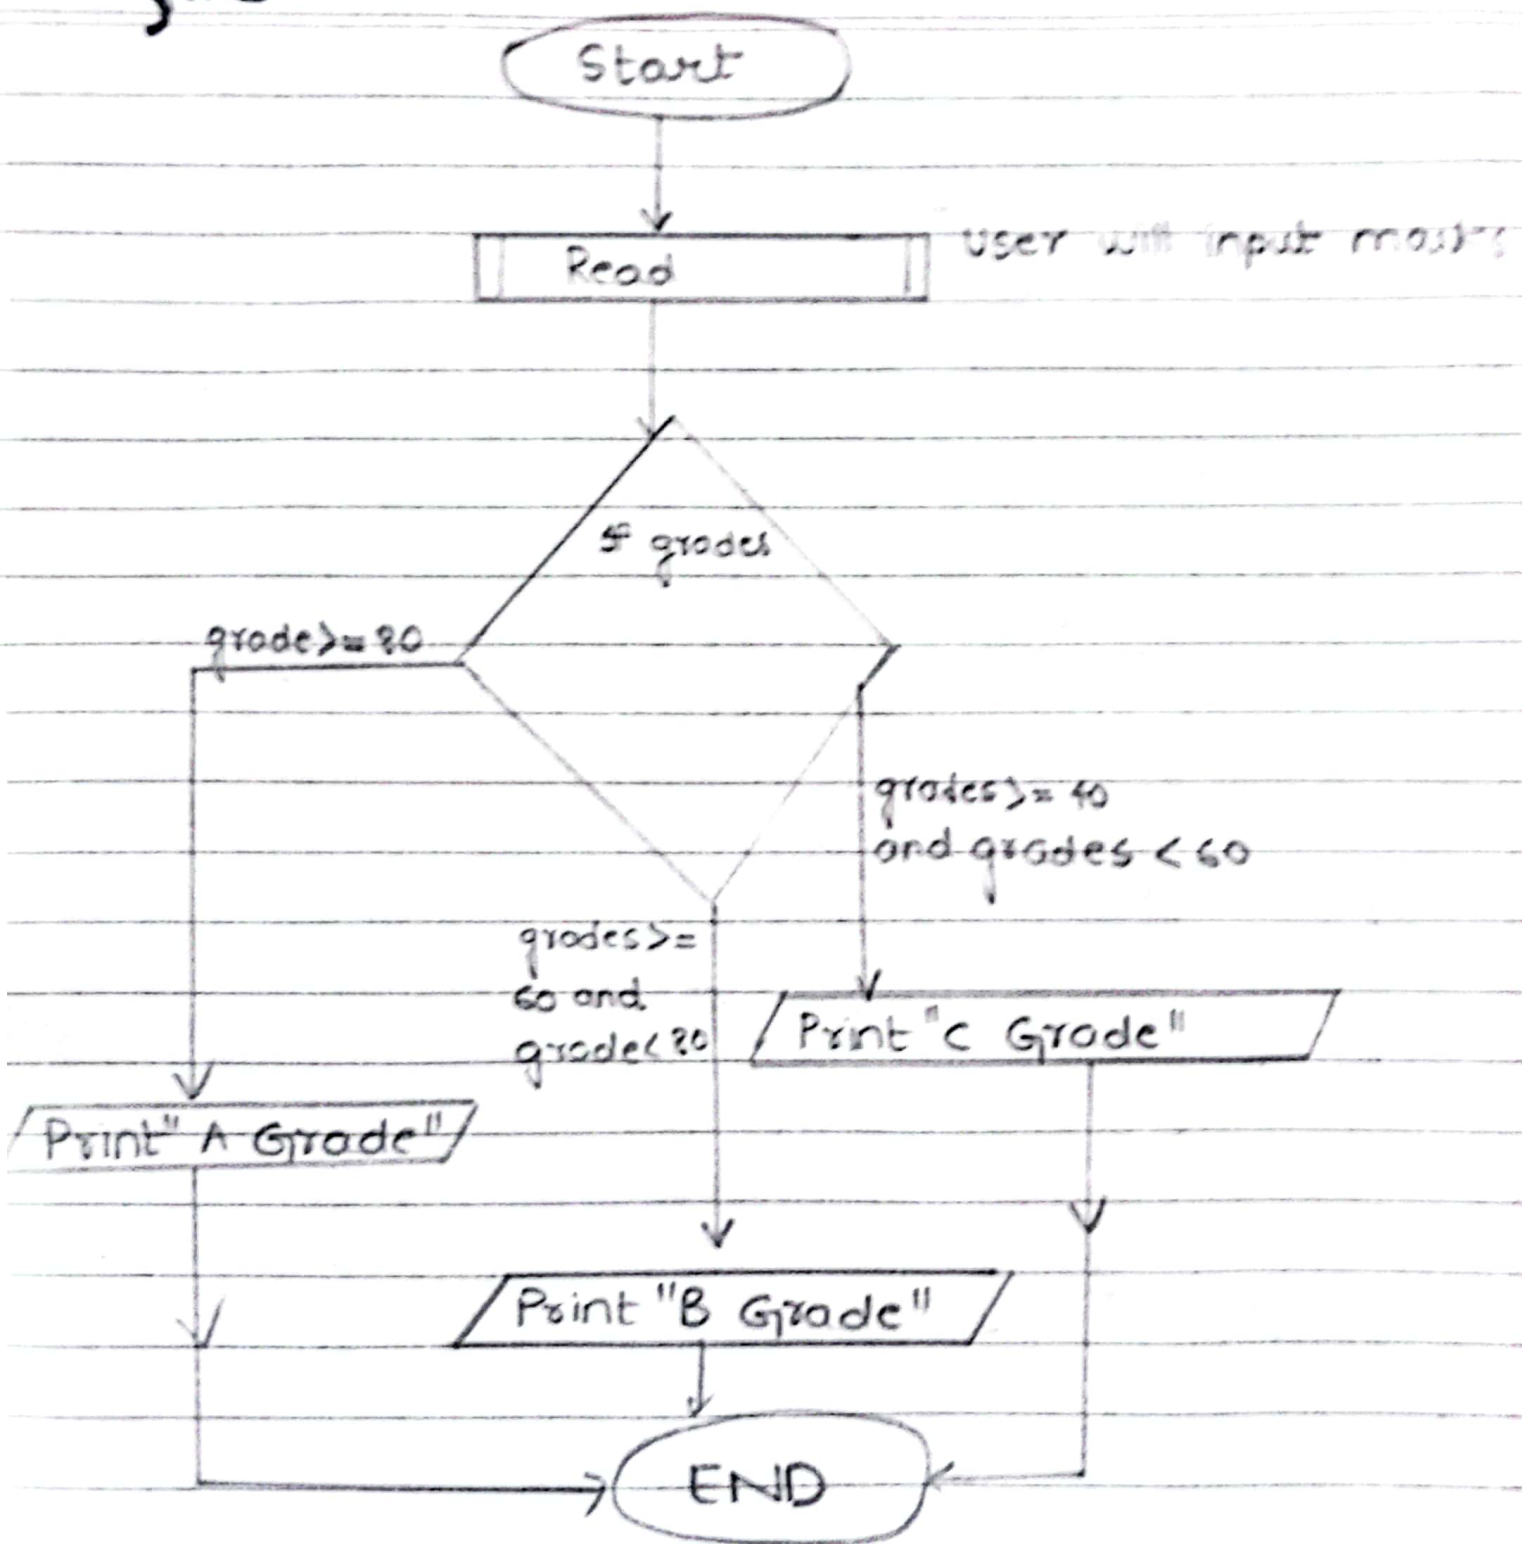 Start
Read
user will input marks
If grades
grade>=80
grades>= 40
and grades < 60
grades>=
60 and
grade< 80
Print "C Grade"
Print "A Grade"
Print "B Grade"
END